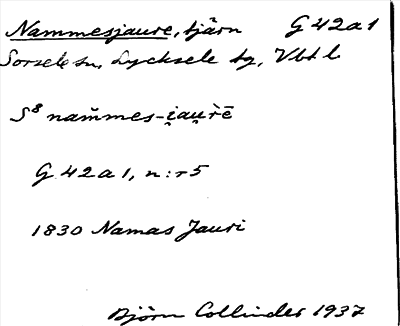 Nammesjaure, tjärn G 42 a 1
Sorsele sn, Lycksele tg, Vbt l
S⁸ nam̆mes-i̯au̯rē
G 42 a 1, n:r 5
1830 Namas Jauri
Björn Collinder 1937